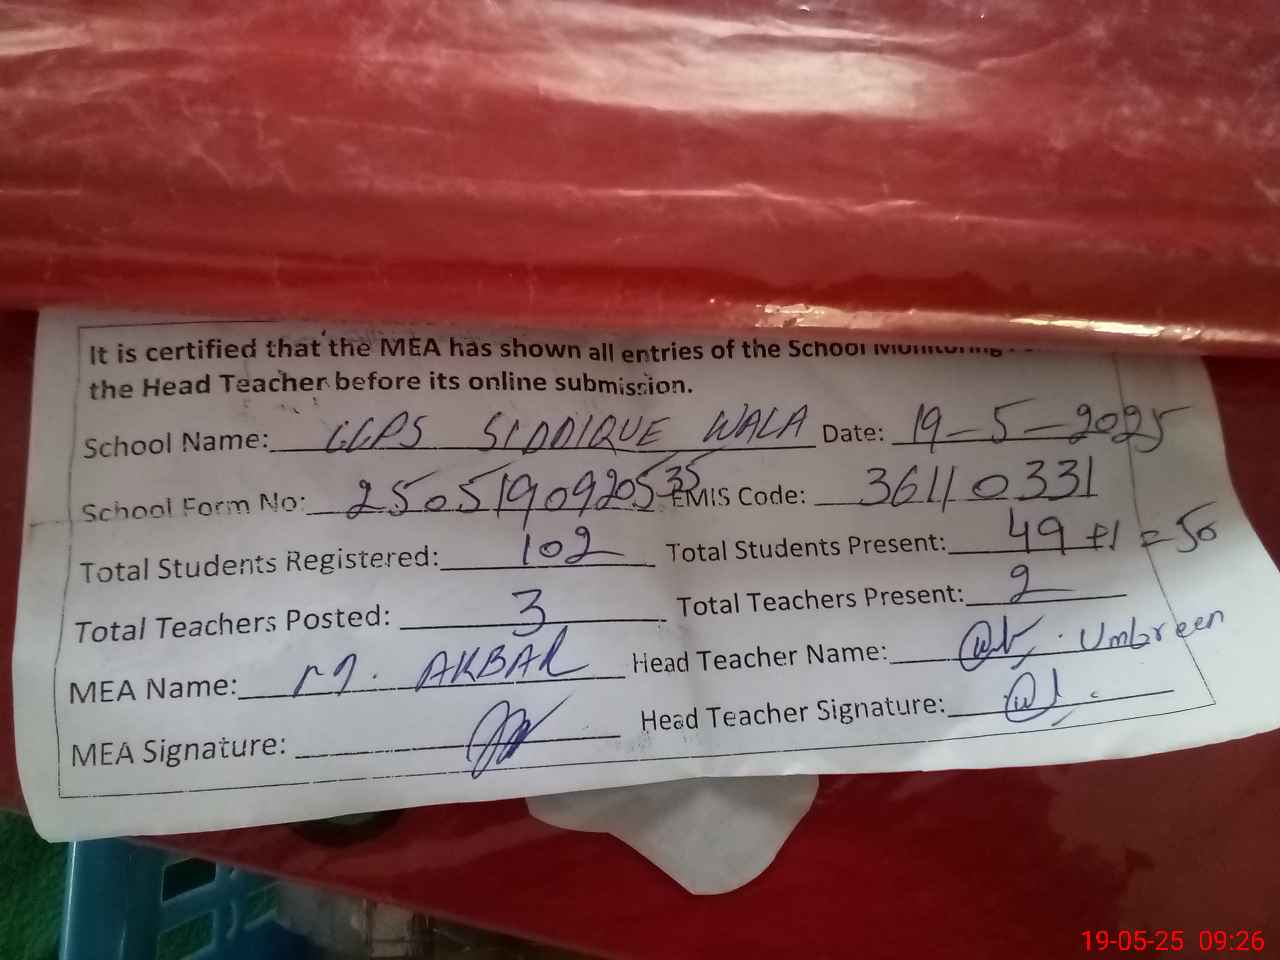 It is certified that the MEA has shown all entries of the School Monitoring
the Head Teacher before its online submission.
School Name: GGPS SIDDIQUE WALA Date: 19-5-2025
School Form No: 25051909205335 EMIS Code: 36110331
Total Students Registered: 102 Total Students Present: 49+1=50
Total Teachers Posted: 3 Total Teachers Present: 2
MEA Name: M. AKBAR Head Teacher Name: Umbreen
MEA Signature: Head Teacher Signature:
19-05-25 09:26